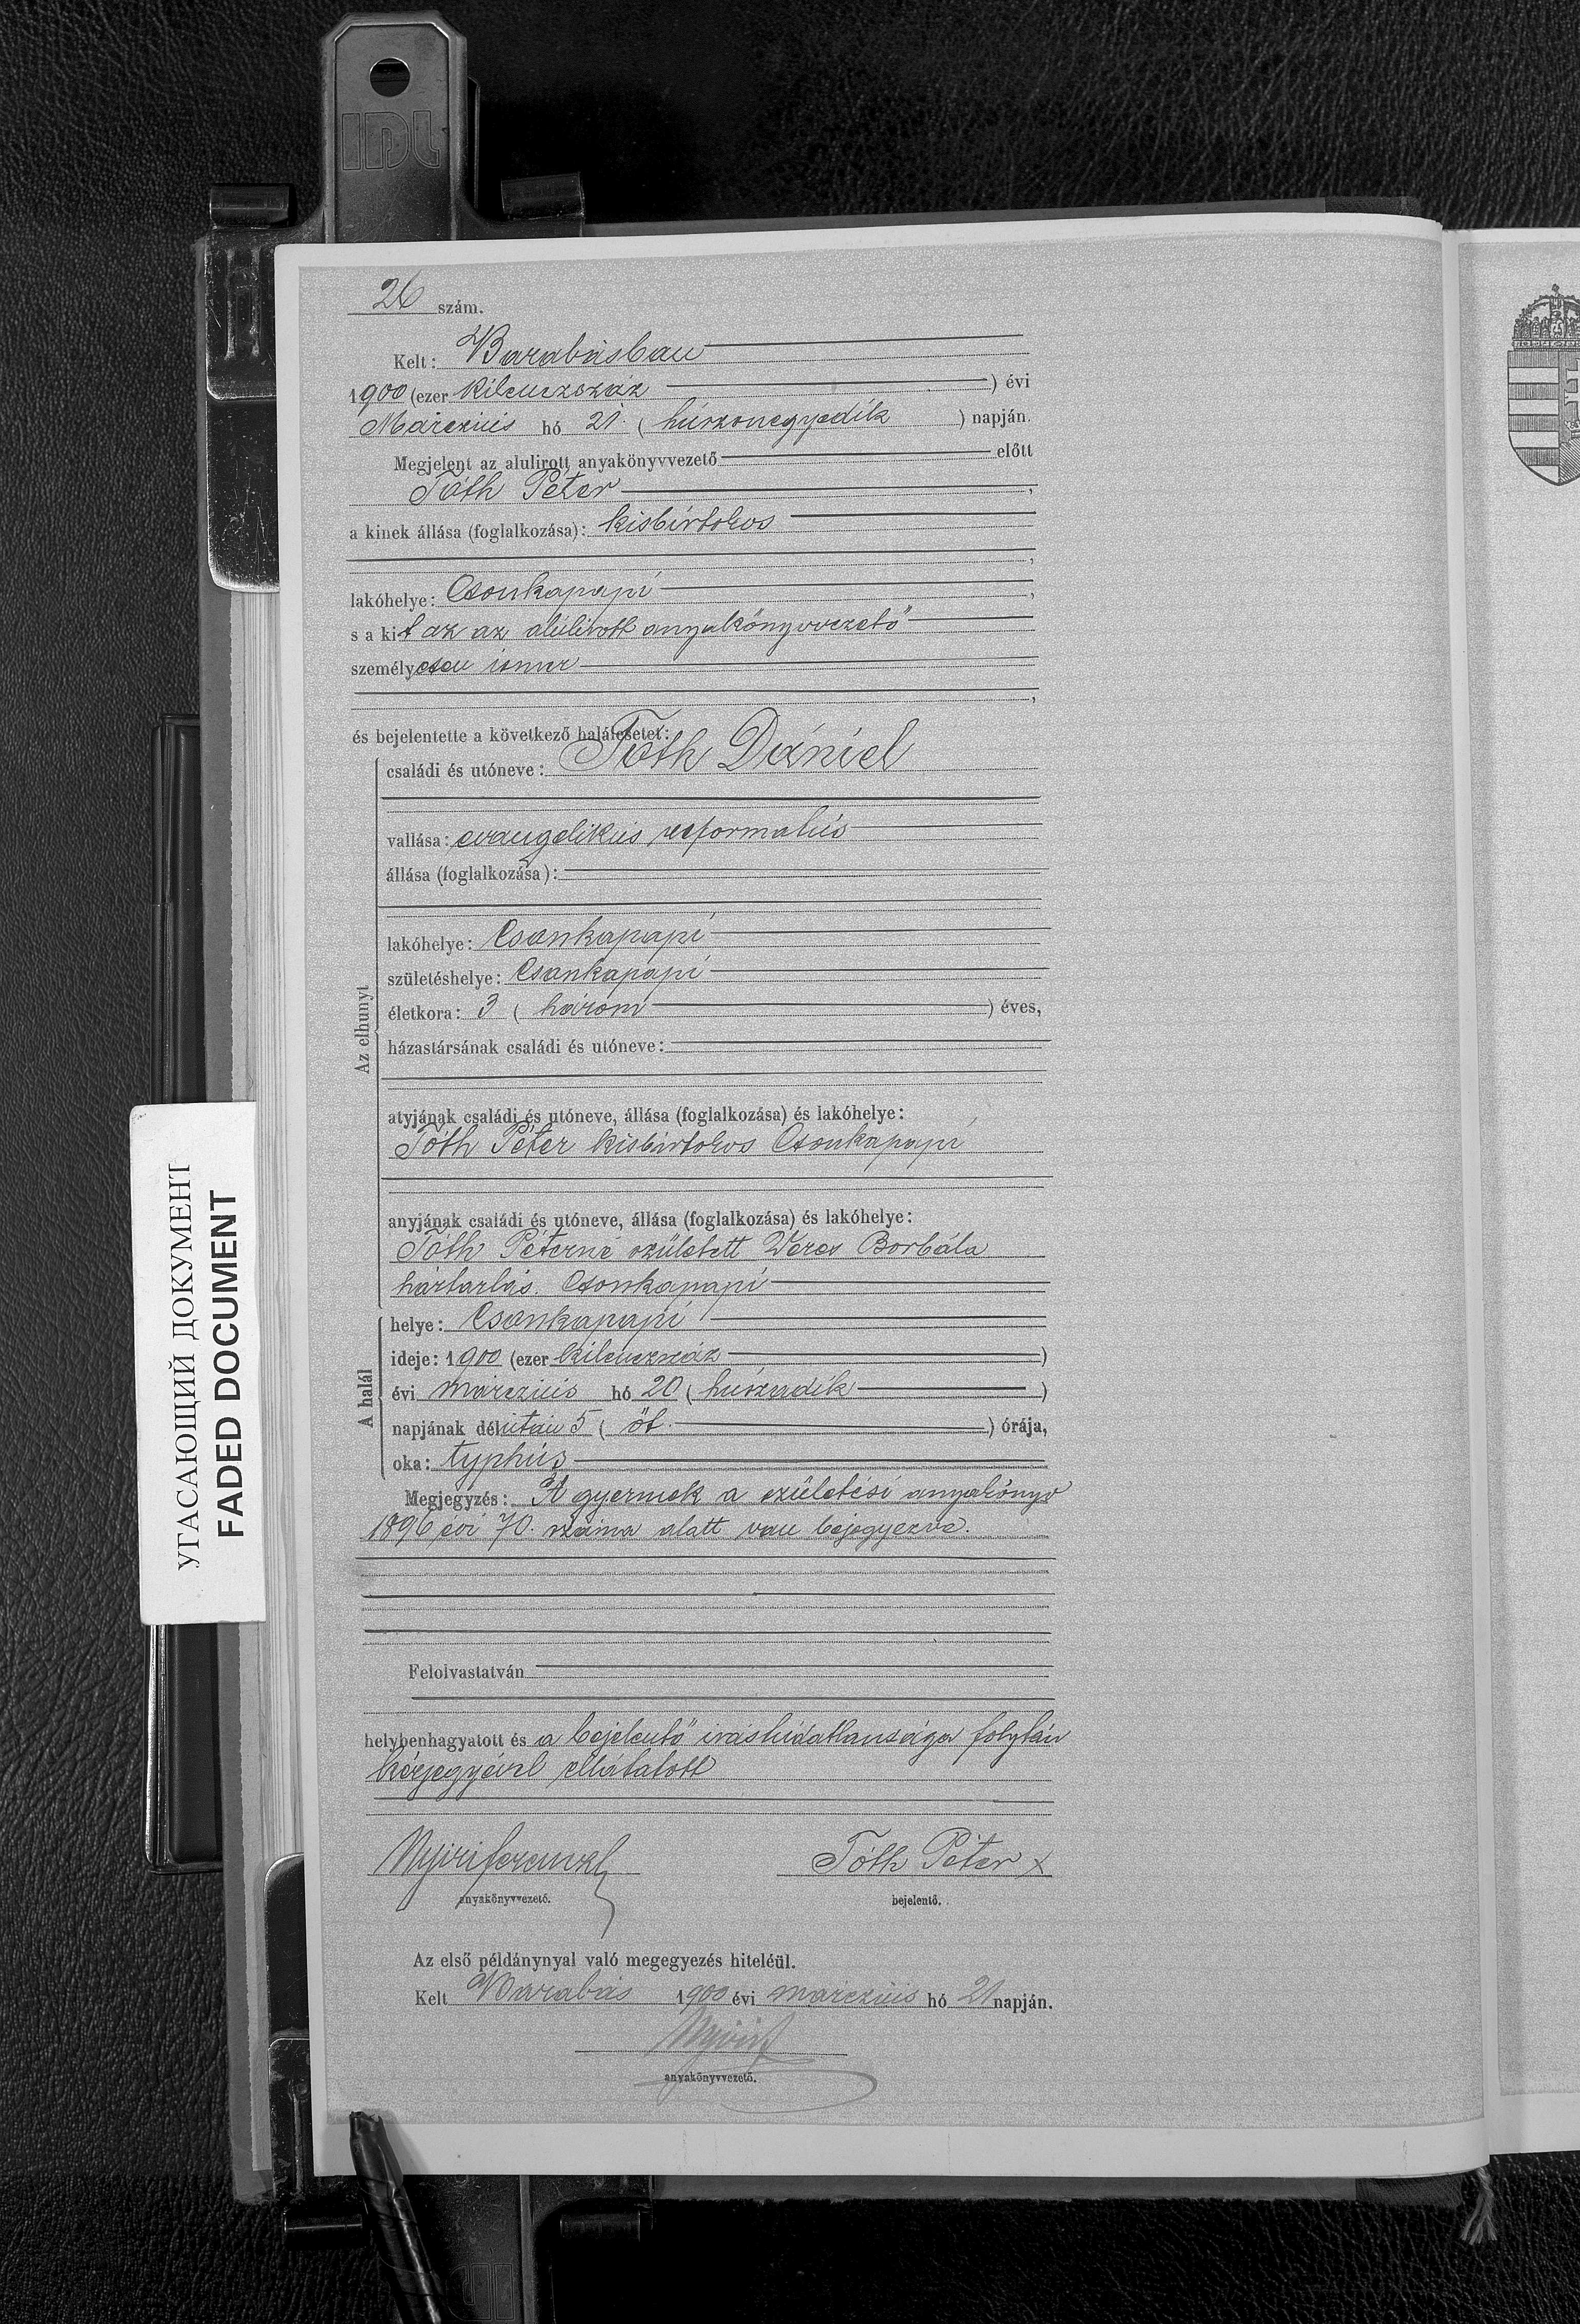 IDL
26 szám.
Kelt: Barabásban
1900 (ezer kilenczszáz ) évi
Márczius hó 21. ( húszonegyedik ) napján.
Megjelent az alulirott anyakönyvvezető előtt
Tóth Péter ,
a kinek állása (foglalkozása): kisbirtokos
,
lakóhelye: Csonkapapi ,
s a kit az az alúlirott anyakönyvvezető
személyesen ismer
,
és bejelentette a következő halálesetet:
családi és utóneve: Tóth Dániel
vallása: evangelikus reformatus
állása (foglalkozása):
lakóhelye: Csonkapapi
születéshelye: Csonkapapi
életkora: 3 ( három ) éves,
házastársának családi és utóneve:
Az elhunyt
atyjának családi és utóneve, állása (foglalkozása) és lakóhelye:
Tóth Péter kisbirtokos Csonkapapi
anyjának családi és utóneve, állása (foglalkozása) és lakóhelye:
Tóth Péterné született Veres Borbála
háztartás. Csonkapapi
helye: Csonkapapi
ideje: 1900 (ezer kilenczszáz )
évi márczius hó 20 ( húszadik )
A halál
napjának délután 5 ( öt ) órája,
oka: typhús
Megjegyzés: A gyermek a születési anyakönyv
1896 évi 70. száma alatt van bejegyezve.
Felolvastatván
helybenhagyatott és a bejelentő irástudatlansága folytán
kézjegyével ellátatott
Nyiri Ferencz Tóth Péter x
anyakönyvvezető. bejelentő.
Az első példánynyal való megegyezés hiteléül.
Kelt Barabás 1900 évi márczius hó 21 napján.
Nyiri F
anyakönyvvezető.
УГАСАЮЩИЙ ДОКУМЕНТ
FADED DOCUMENT